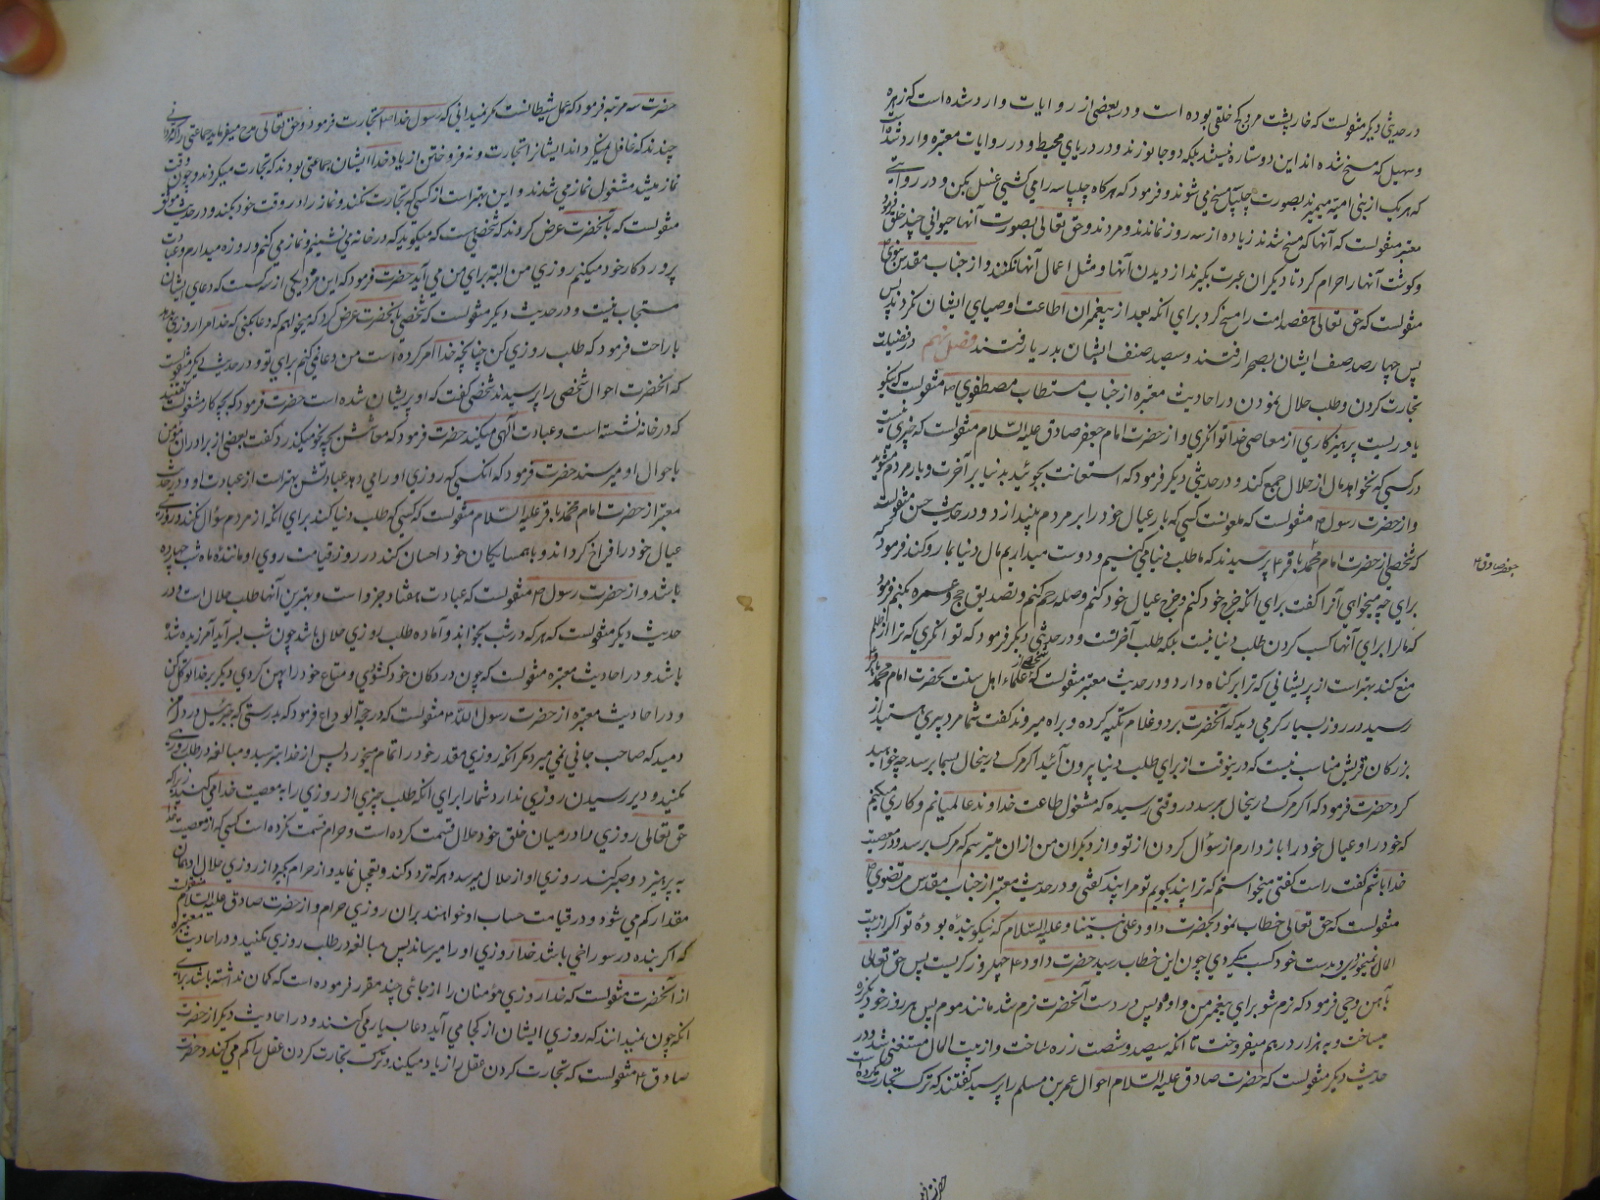 در حدیثی دیگر منقولست که خارپشت مرد کج خلقی بوده است و در بعضی از روایات وارد شده است که زهره
و سهیل که مسخ شده اند این دو ستاره نیستند بلکه دو جانورند در دریای محیط و در روایات معتبره وارد شده است
که هر یک از بنی امیه میمیرند بصورت چلپاسه مسخ می شوند و فرمود که هرگاه چلپاسه را می کشی غسل بکن و در روایتی
معتبر منقولست که آنها که مسخ شدند زیاده از سه روز نماندند و مردند و حق تعالی بصورت آنها حیوانی چند خلق فرمود
و گوشت آنها را حرام کرد تا دیگران عبرت بگیرند از دیدن آنها و مثل اعمال آنها نکنند و از جناب مقدس نبوی
منقولست که حق تعالی هفتصد امت را مسخ کرد برای آنکه بعد از پیغمبران اطاعت اوصیای ایشان نکردند پس
پس چهار صد صنف ایشان بصحرا رفتند و سیصد صنف ایشان بدریا رفتند فصل نهم در فضیلت
تجارت کردن و طلب حلال نمودن در احادیث معتبره از جناب مستطاب مصطفوی ص منقولست که نیکو
یاوریست پرهیزکاری از معاصی خدا توانگری و از حضرت امام جعفر صادق علیه السلام منقولست که خیری نیست
در کسی که نخواهد مال از حلال جمع کند و در حدیثی دیگر فرمود که استعانت بجوئید بدنیا بر آخرت و بار مردم مشوید
و از حضرت رسول ص منقولست که ملعونست کسی که بار عیال خود را بر مردم بیندازد و در حدیث حسن منقولست
که شخصی از حضرت امام محمد باقر ع پرسید که ما طلب دنیا می کنیم و دوست میداریم مال دنیا بما رو کند فرمود که
جعفر صادق ع
برای چه میخواهی آنرا گفت برای آنکه خرج خود کنم و خرج عیال خود کنم و صله رحم کنم و تصدیق حج و عمره بکنم فرمود
که مال را برای آنها کسب کردن طلب دنیا نیست بلکه طلب آخرتست و در حدیثی دیگر فرمود که توانگری که ترا از ظلم
منع کند بهتر است از پریشانی که ترا بر گناه دارد و در حدیث معتبر منقولست که شخصی از علماء اهل سنت بحضرت امام محمد باقر
رسید در روز بسیار گرمی دید که آنحضرت بر دو غلام تکیه کرده و براه میروند گفت شما مرد پیری هستید از
بزرگان قریش مناسب نیست که درینوقت از برای طلب دنیا بیرون آئید اگر مرگ درینحال بشما برسد چه خواهید
کرد حضرت فرمود که اگر مرگ درینحال برسد در وقتی رسیده که مشغول طاعت خداوند عالمیانم و کاری میکنم
که خود را و عیال خود را باز دارم از سؤال کردن از تو و از دیگران من ازان میترسم که مرگ برسد و در معصیت
خدا باشم گفت راست گفتی میخواستم که ترا پند بگویم تو مرا پند گفتی و در حدیث معتبر از جناب مقدس مرتضوی ص
منقولست که حق تعالی خطاب نمود بحضرت داود علی نبینا و علیه السلام که نیکو بنده بوده تو اگر از بیت
المال نمیخوردی و بدست خود کسب میکردی چون این خطاب رسید حضرت داود ع چهل روز گریست پس حق تعالی
بآهن وحی فرمود که نرم شو برای پیغمبر من داود پس در دست آنحضرت نرم شد مانند موم پس هر روز خود یک زره
میساخت و به هزار درهم میفروخت تا آنکه سیصد و شصت زره ساخت و از بیت المال مستغنی شد و در
حدیث دیگر منقولست که حضرت صادق علیه السلام احوال عمر بن مسلم را پرسید گفتند که ترک تجارت کرده است
حضرت سه مرتبه فرمود که عمل شیطانست مگر نمیدانی که رسول خدا ص تجارت فرمود و حق تعالی مدح میفرماید جماعتی را
چند که غافل نمیگرداند ایشانرا تجارت و نه فروختن از یاد خدا ایشان جماعتی بودند که تجارت میکردند و چون وقت
نماز میشد مشغول نماز می شدند و این بهتر است از کسی که تجارت نکند و نماز را در وقت خود بکند و در حدیث موثق
منقولست که بآنحضرت عرض کردند که شخصی هست که میگوید که در خانه می نشینم و نماز می کنم و روزه میدارم و عبادت
پروردگار خود میکنم روزی من البته برای من می آید حضرت فرمود که این مرد یکی از سه کس است که دعای ایشان
مستجاب نیست و در حدیث دیگر منقولست که شخصی بآنحضرت عرض کرد که میخواهم که دعا بکنی که خدا مرا روزی بدهد
با راحت فرمود که طلب روزی کن چنانچه خدا امر کرده است من دعا نمی کنم برای تو و در حدیثی دیگر منقولست
که آنحضرت احوال شخصی را پرسید شخصی گفت که او پریشان شده است حضرت فرمود که بچه کار مشغولست گفتند
که در خانه نشسته است و عبادت آلهی میکند حضرت فرمود که معاشش بچه نحو میگذرد گفت بعضی از برادران مؤمن
باحوال او میرسند حضرت فرمود که آنکسی که روزی او را می دهد عبادتش بهتر است از عبادت او و در حدیث
معتبر از حضرت امام محمد باقر علیه السلام منقولست که کسی که طلب دنیا کند برای آنکه از مردم سؤال نکند و روزی
عیال خود را فراخ گرداند و با همسایگان خود احسان کند در روز قیامت روی او مانند ماه شب چهارده
باشد و از حضرت رسول ص منقولست که عبادت هفتاد جزو است و بهترین آنها طلب حلال است و در
حدیث دیگر منقولست که هر که در شب بخوابد و آماده طلب روزی حلال باشد چون شب بسر آید آمرزیده شده
باشد و در احادیث معتبره منقولست که چون در دکان خود گشودی و متاع خود را پهن کردی دیگر بر خدا توکل کن
و در احادیث معتبره از حضرت رسول الله ص منقولست که در حجة الوداع فرمود که بدرستی که جبرئیل در دل من
دمید که صاحب جانی نمی میرد مگر آنکه روزی مقدر خود را تمام میخورد پس از خدا بترسید و مبالغه در طلب روزی
مکنید و دیر رسیدن روزی ندارد شما را برای آنکه طلب چیزی از روزی را به معصیت خدا می کنید زیرا که
حق تعالی روزی را در میان خلق خود حلال قسمت کرده است و حرام قسمت نکرده است کسی که از معصیت خدا
به پرهیزد و صبر کند روزی او از حلال میرسد و هر که تردد کند و تعجیل نماید و از حرام بگیرد از روزی حلال او همان
مقدار کم می شود و در قیامت حساب او خواهند بران روزی حرام و از حضرت صادق علیه السلام منقولست
که اگر بنده در سوراخی باشد خدا روزی او را میرساند پس مبالغه در طلب روزی مکنید و در احادیث معتبره
از آنحضرت منقولست که خدا روزی مؤمنان را از جائی چند مقرر فرموده است که گمان نداشته باشند برای
آنکه چون نمیدانند که روزی ایشان از کجا می آید دعا بسیار می کنند و در احادیث دیگر از حضرت
صادق ع منقولست که تجارت کردن عقل را زیاد میکند و ترک تجارت کردن عقل را کم می کند و حضرت